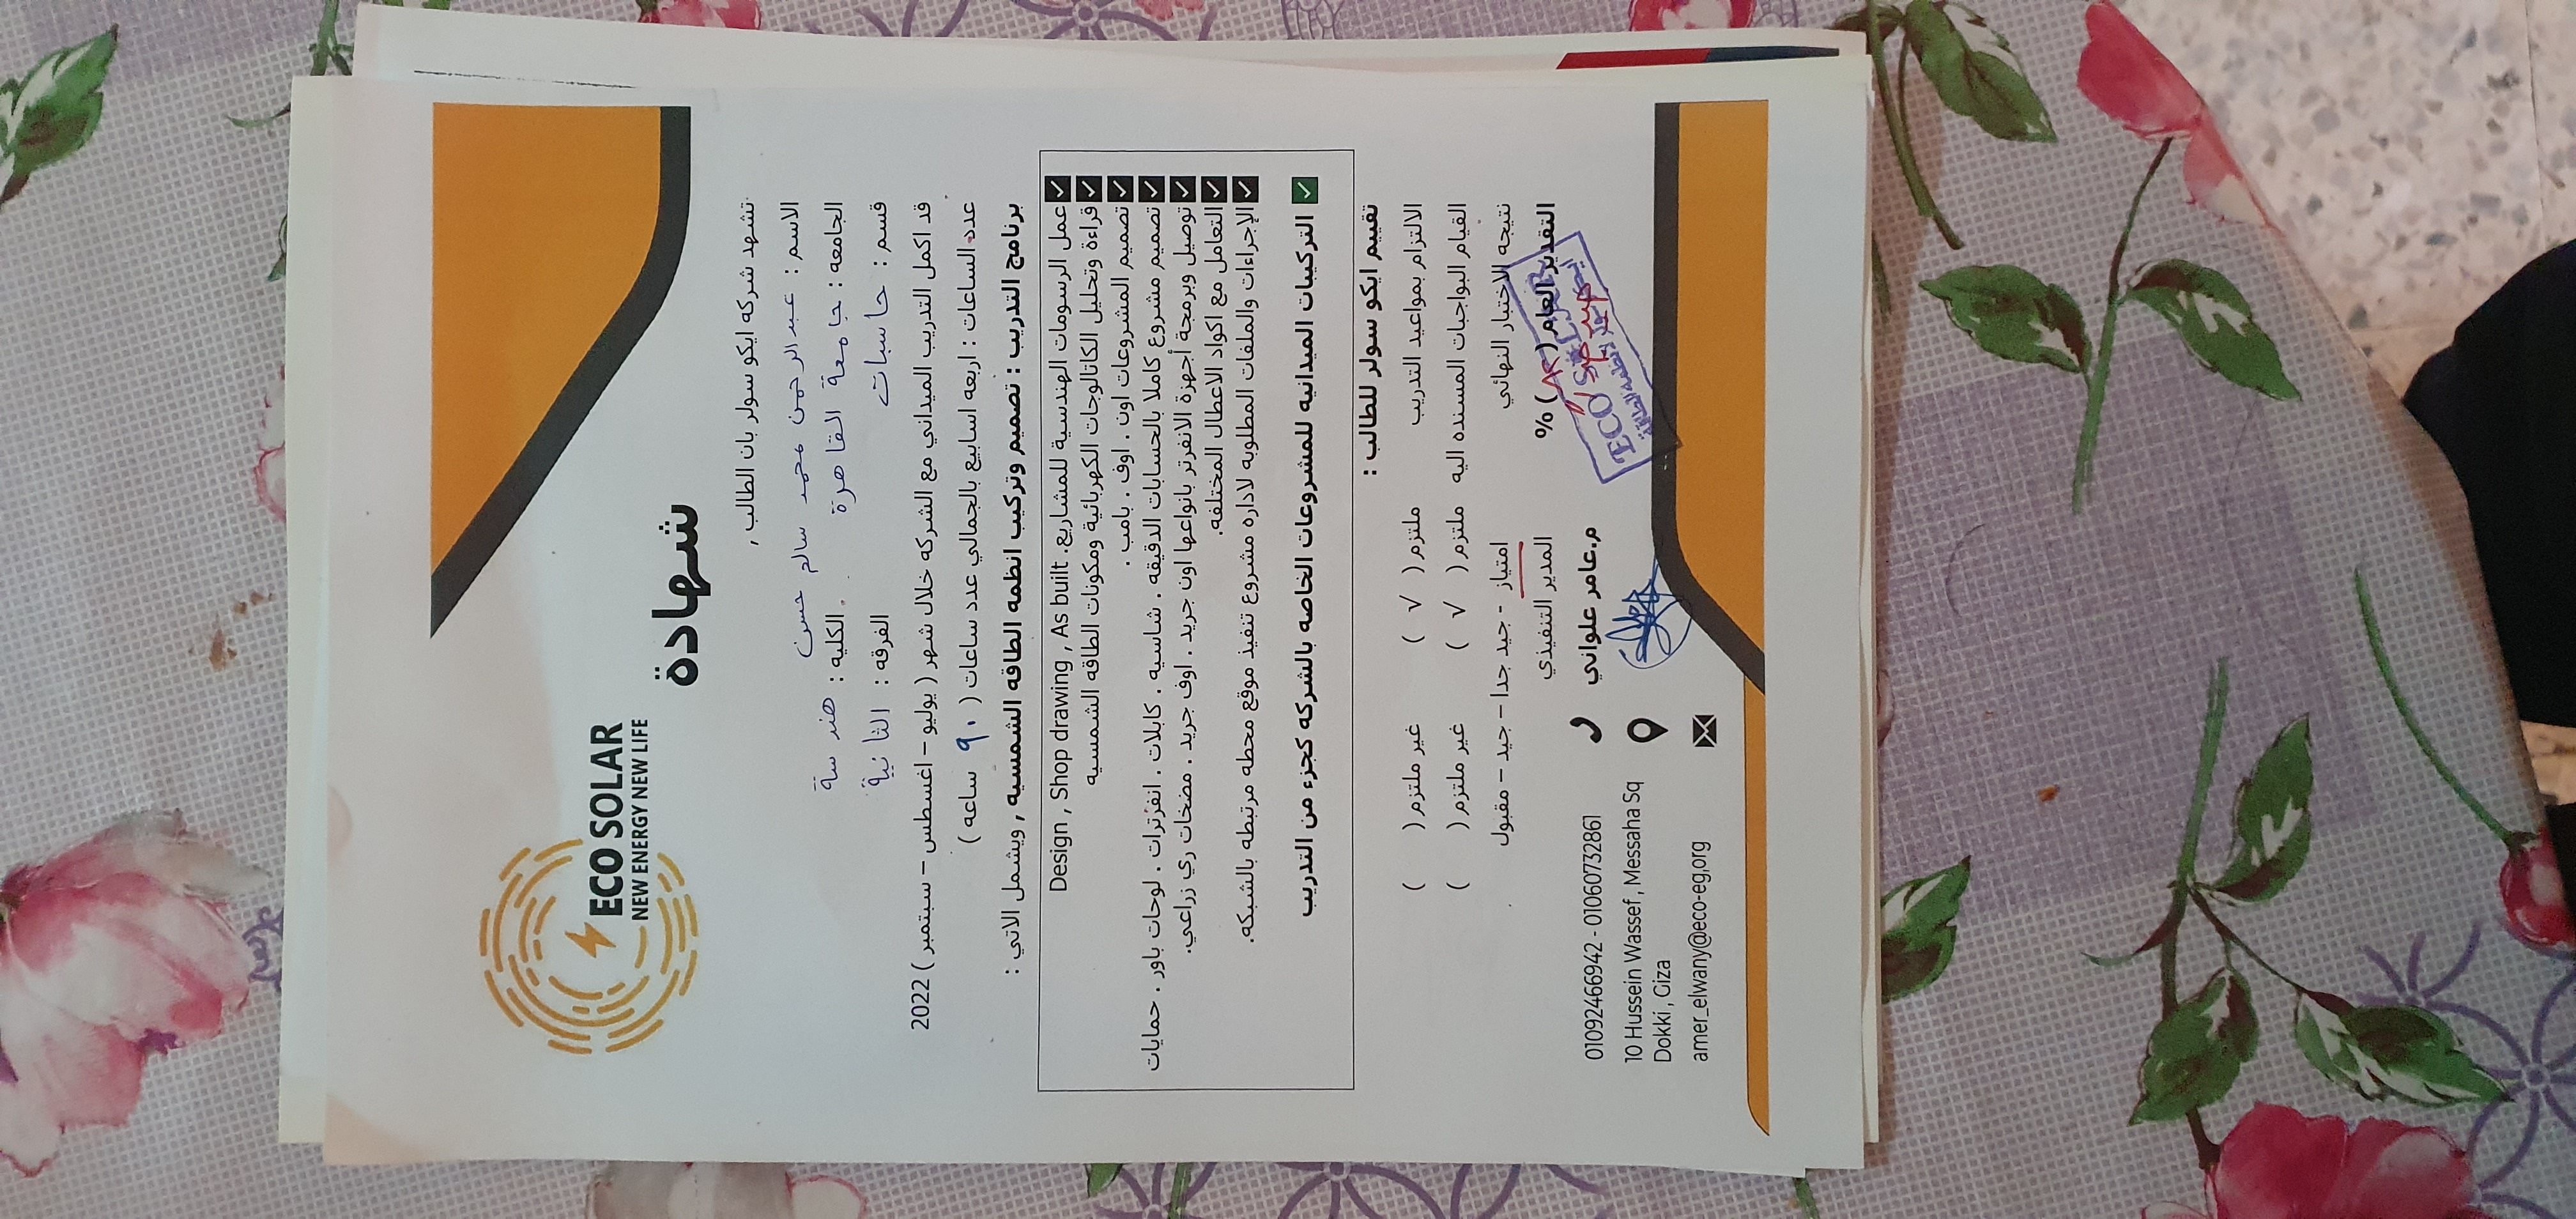 ECO SOLAR
NEW ENERGY NEW LIFE
شهادة
تشهد شركه ايكو سولر بان الطالب ,
الاسم : عبدالرحمن محمد سالم حسن
الجامعه : جامعة القاهرة الكليه : هندسة
قسم : حاسبات الفرقه : الثانية
قد اكمل التدريب الميداني مع الشركه خلال شهر ( يوليو – اغسطس – سبتمبر ) 2022
عدد الساعات : اربعه اسابيع بالجمالي عدد ساعات ( ٩٠ ساعه )
برنامج التدريب : تصميم وتركيب انظمه الطاقه الشمسيه , ويشمل الاتي :
عمل الرسومات الهندسية للمشاريع. Design , Shop drawing , As built
قراءة وتحليل الكاتالوجات الكهربائية ومكونات الطاقه الشمسيه
تصميم المشروعات اون . اوف . بامب .
تصميم مشروع كاملا بالحسابات الدقيقه . شاسيه . كابلات . انفرترات . لوحات باور . حمايات
توصيل وبرمجة أجهزة الانفرتر بانواعها اون جريد . اوف جريد . مضخات ري زراعي.
التعامل مع اكواد الاعطال المختلفه.
الإجراءات والملفات المطلوبه لاداره مشروع تنفيذ موقع محطه مرتبطه بالشبكه.
التركيبات الميدانيه للمشروعات الخاصه بالشركه كجزء من التدريب
تقييم ايكو سولر للطالب :
الالتزام بمواعيد التدريب ملتزم ( √ ) غير ملتزم ( )
القيام البواجبات المسنده اليه ملتزم ( √ ) غير ملتزم ( )
نتيجه الاختبار النهائي امتياز - جيد جدا – جيد – مقبول
التقدير العام ( ) % المدير التنفيذي
جيد جدا
ECO SOLAR
ايكو سولر لانظمه الطاقة
م.عامر علواني
01092466942 - 01060732861
10 Hussein Wassef , Messaha Sq
Dokki , Giza
amer_elwany@eco-eg,org